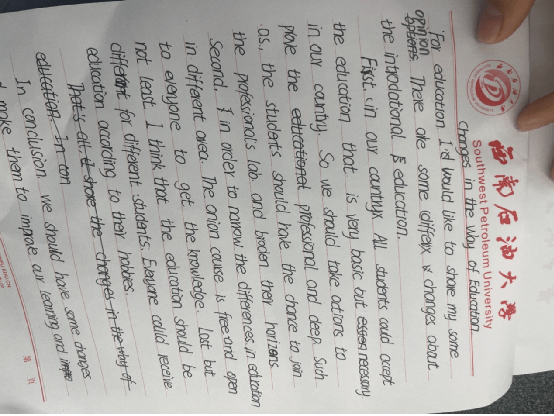 西南石油大学
Southwest Petroleum University
Changes in the Way of Education
For education I'd would like to share my some
opinion There are some changes about
the introdational education.
First, in our country All students could accept
the education that is very basic but necessary
in our country. So we should take actions to
prove the professional and deep. Such
as, the students should have the chance to join
the professionals lab and broden their horizens.
Second, in order to narrow the differences in education
in different area. The onion course is free and open
to everyone to get the knowledge. Last but
not least. I think that the education should be
different for different students. Everyone could receive
education according to their hobbies.
That's all I share the changes in the way of
education. In con
In conclusion we should have some changes
make them to improve our learning and
第 页